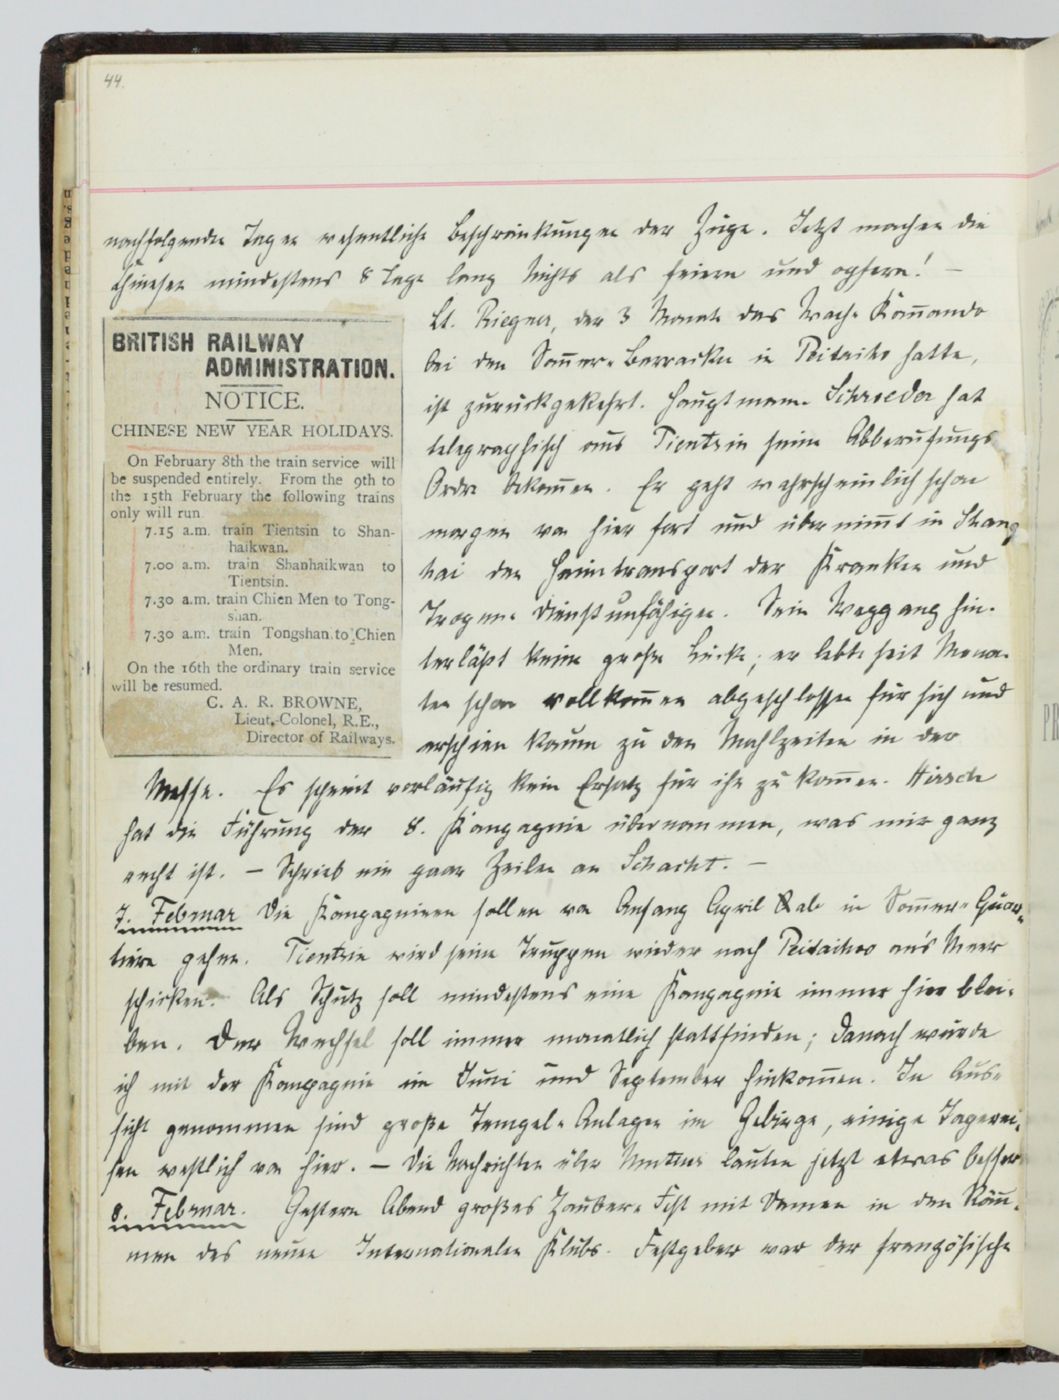 44.
nachfolgenden Tagen wesentliche Beschränkungen der Züge. Jetzt machen die
Chinesen mindestens 8 Tage lang Nichts als feiern und opfern! —
BRITISH RAILWAY
ADMINISTRATION.
NOTICE.
CHINESE NEW YEAR HOLIDAYS.
On February 8th the train service will
be suspended entirely. From the 9th to
the 15th February the following trains
only will run
7.15 a.m. train Tientsin to Shan-
haikwan.
7.00 a.m. train Shanhaikwan to
Tientsin.
7.30 a.m. train Chien Men to Tong-
shan.
7.30 a.m. train Tongshan to Chien
Men.
On the 16th the ordinary train service
will be resumed.
C. A. R. BROWNE,
Lieut.-Colonel, R.E.,
Director of Railways.
Lt. Riegner, der 3 Monate das Wach-Kom̄ando
bei den Som̄er-Barracken in Peitaiho hatte,
ist zurückgekehrt. Hauptmann Schroeder hat
telegraphisch aus Tientsin seine Abberufungs
Ordre bekom̄en. Er geht wahrscheinlich schon
morgen von hier fort und übernim̄t in Shang
hai den Heimtransport der Kranken und
Tropen-Dienstunfähigen. Sein Weggang hin-
terläßt keine große Lücke; er lebte seit Mona-
ten schon vollkom̄en abgeschlossen für sich und
erschien kaum zu den Mahlzeiten in der
Messe. Es scheint vorläufig kein Ersatz für ihn zu kom̄en. Hirsch
hat die Führung der 8. Kompagnie übernommen, was mir ganz
recht ist. — Schrieb ein paar Zeilen an Schacht. —
7. Februar Die Kompagnieen sollen von Anfang April ab in Som̄er-Quar-
tiere gehen. Tientsin wird seine Truppen wieder nach Peitaiho an's Meer
schicken. Als Schutz soll mindestens eine Kompagnie immer hier blei-
ben. Der Wechsel soll immer monatlich stattfinden; danach würde
ich mit der Kompagnie im Juni und September hinkom̄en. In Aus-
sicht genommen sind große Tempel-Anlagen im Gebirge, einige Tagerei-
sen westlich von hier. — Die Nachrichten über lauten jetzt etwas besser
8. Februar. Gestern Abend großes Zauber-Fest mit Damen in den Räu-
men des neuen Internationalen Klubs. Festgeber war der französische